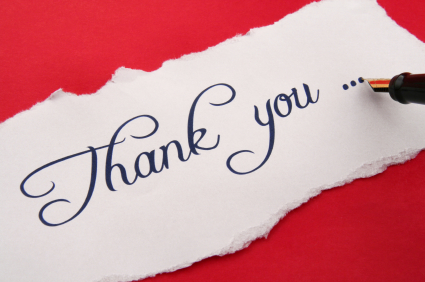 Thank you ...